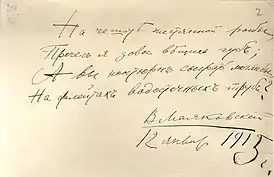 2
На чешуе жестяной рыбы
Прочел я зовы вещих губ;
А вы ноктюрн сыграть могли бы
На флейтахъ водосточныхъ трубъ?
В. Маяковский
12 январ 1915 г.